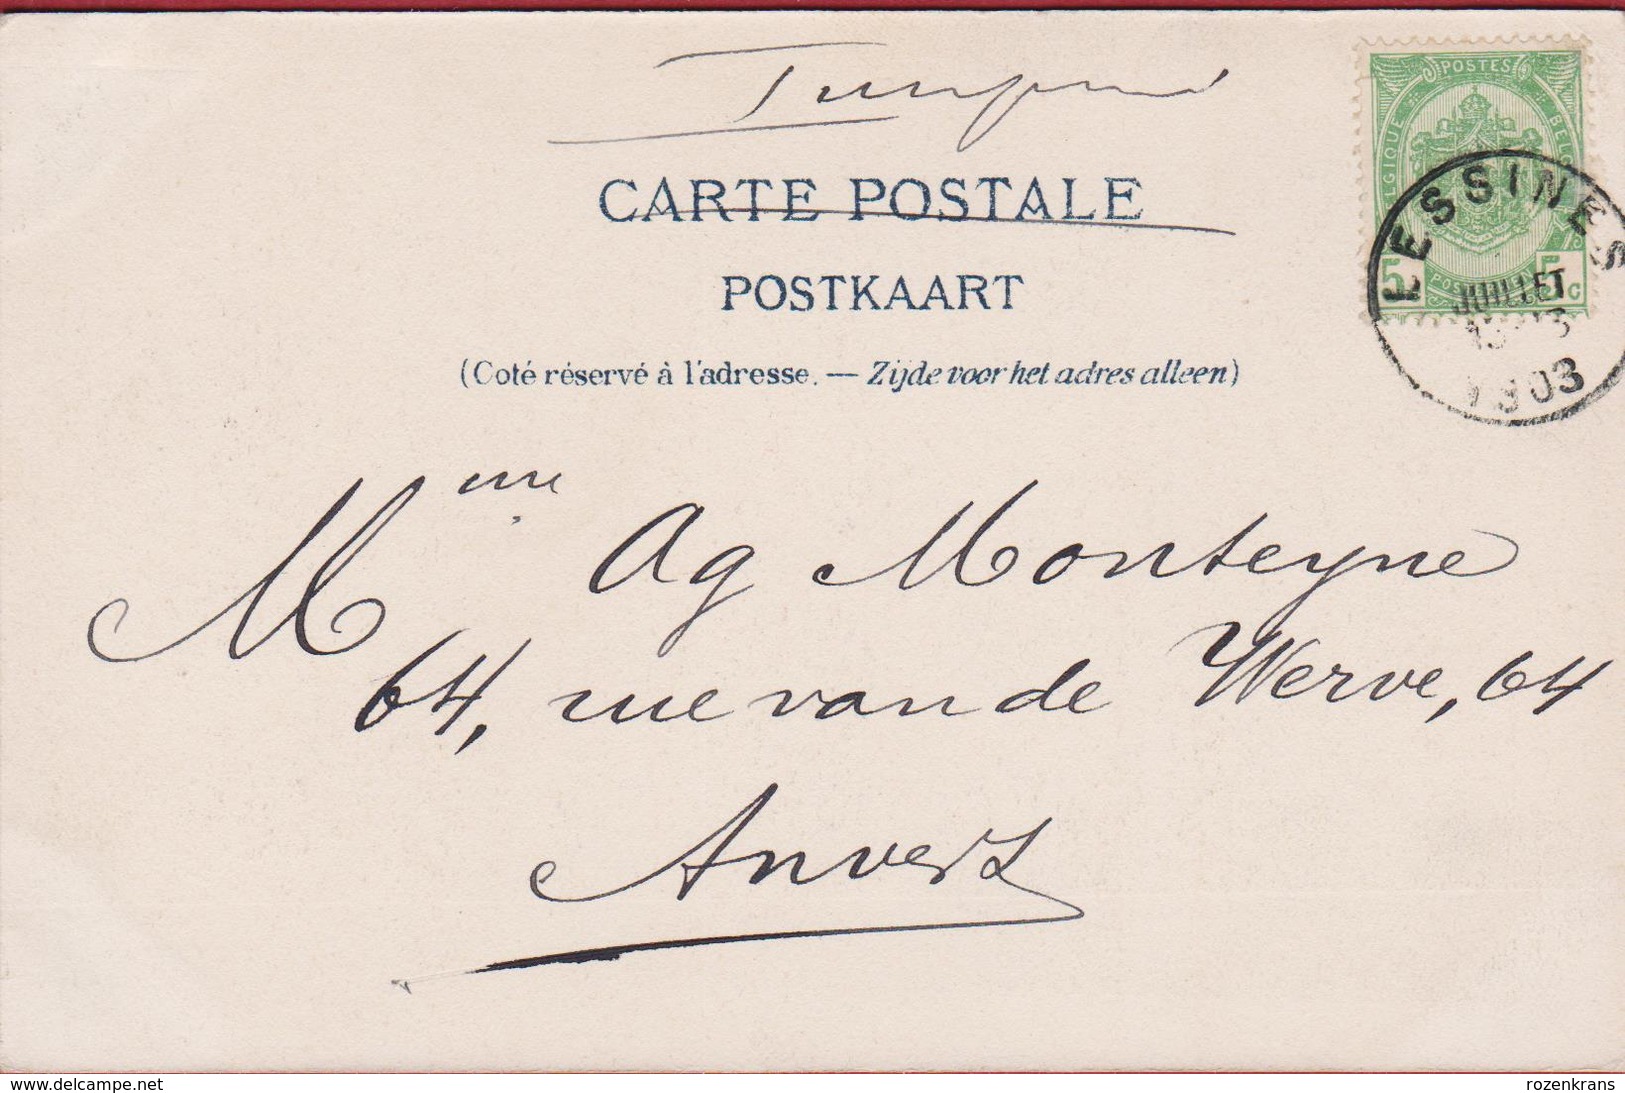 Imprimé
POSTES
BELGIQUE BELG
CARTE POSTALE
LESSINES
5 5
POSTERIJEN C
JUILLET
1903
POSTKAART
(Coté réservé à l'adresse. — Zijde voor het adres alleen)
Mme Ag Monteyne
64, rue van de Werve, 64
Anvers
www.delcampe.net
rozenkrans